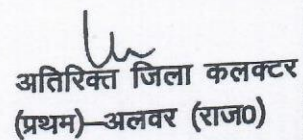 अतिरिक्त जिला कलक्टर
(प्रथम)–अलवर (राज0)